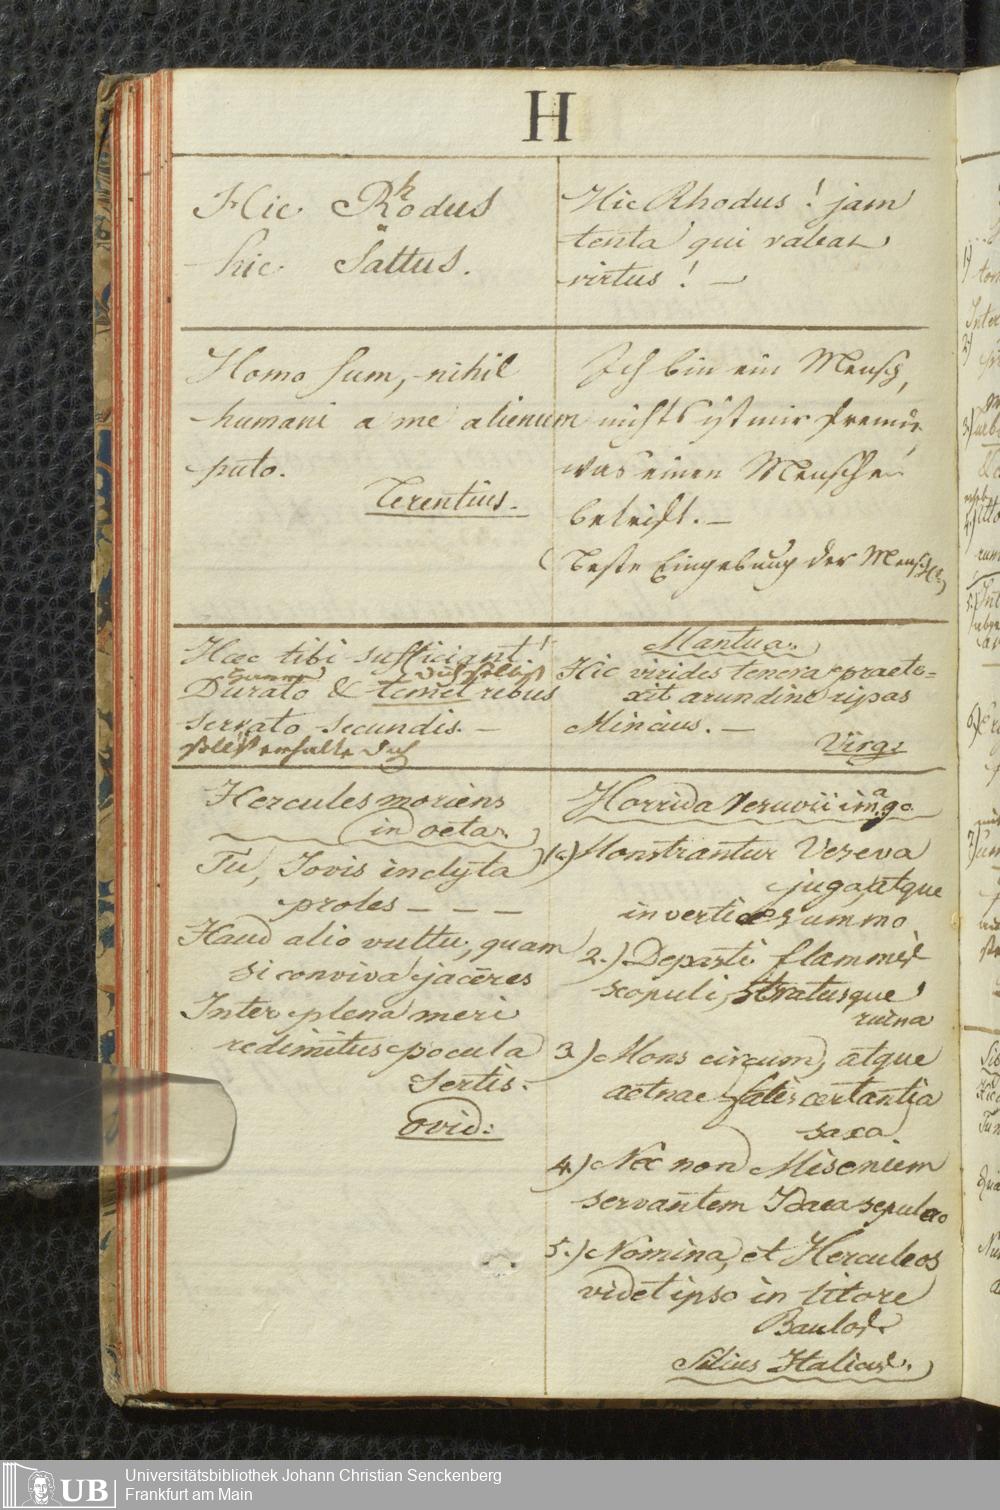 H
Hic Rhodus
hic Saltus.
Hic Rhodus! jam
tenta qui valeat
virtus! —
Homo sum, nihil
humani a me alienum
puto.
Terentius.
Ich bin ein Mensch,
nichts ist mir fremd,
was einen Menschen
betrift. —
(Beste Eingebung der
Haec tibi sufficiant!
Durato & temet rebus
servato secundis. —
erhalte dich
Mantua.
Hic virides tenera praete=
xit arundine ripas
Mincius. —
Virg:
Hercules moriens
in oeta.
Tu, Jovis inclyta
proles — — —
Haud alio vultu, quam
si conviva jaceres
Inter plena meri
redimitus pocula
Sertis.
Ovid:
Horrida Vesuvii imago
1.) Monstrantur Veseva
juga, atque
in vertice summo
2.) Depasti flammis
scopuli, stratusque
ruina
3.) Mons circum, atque
aetnae fatis certantia
saxa.
4.) Nec non Misenum
servantem Idaea sepulcro
5.) Nomina, et Herculeos
videt ipso in litore
Baulos.
Silius Italicus.
UB
Universitätsbibliothek Johann Christian Senckenberg
Frankfurt am Main